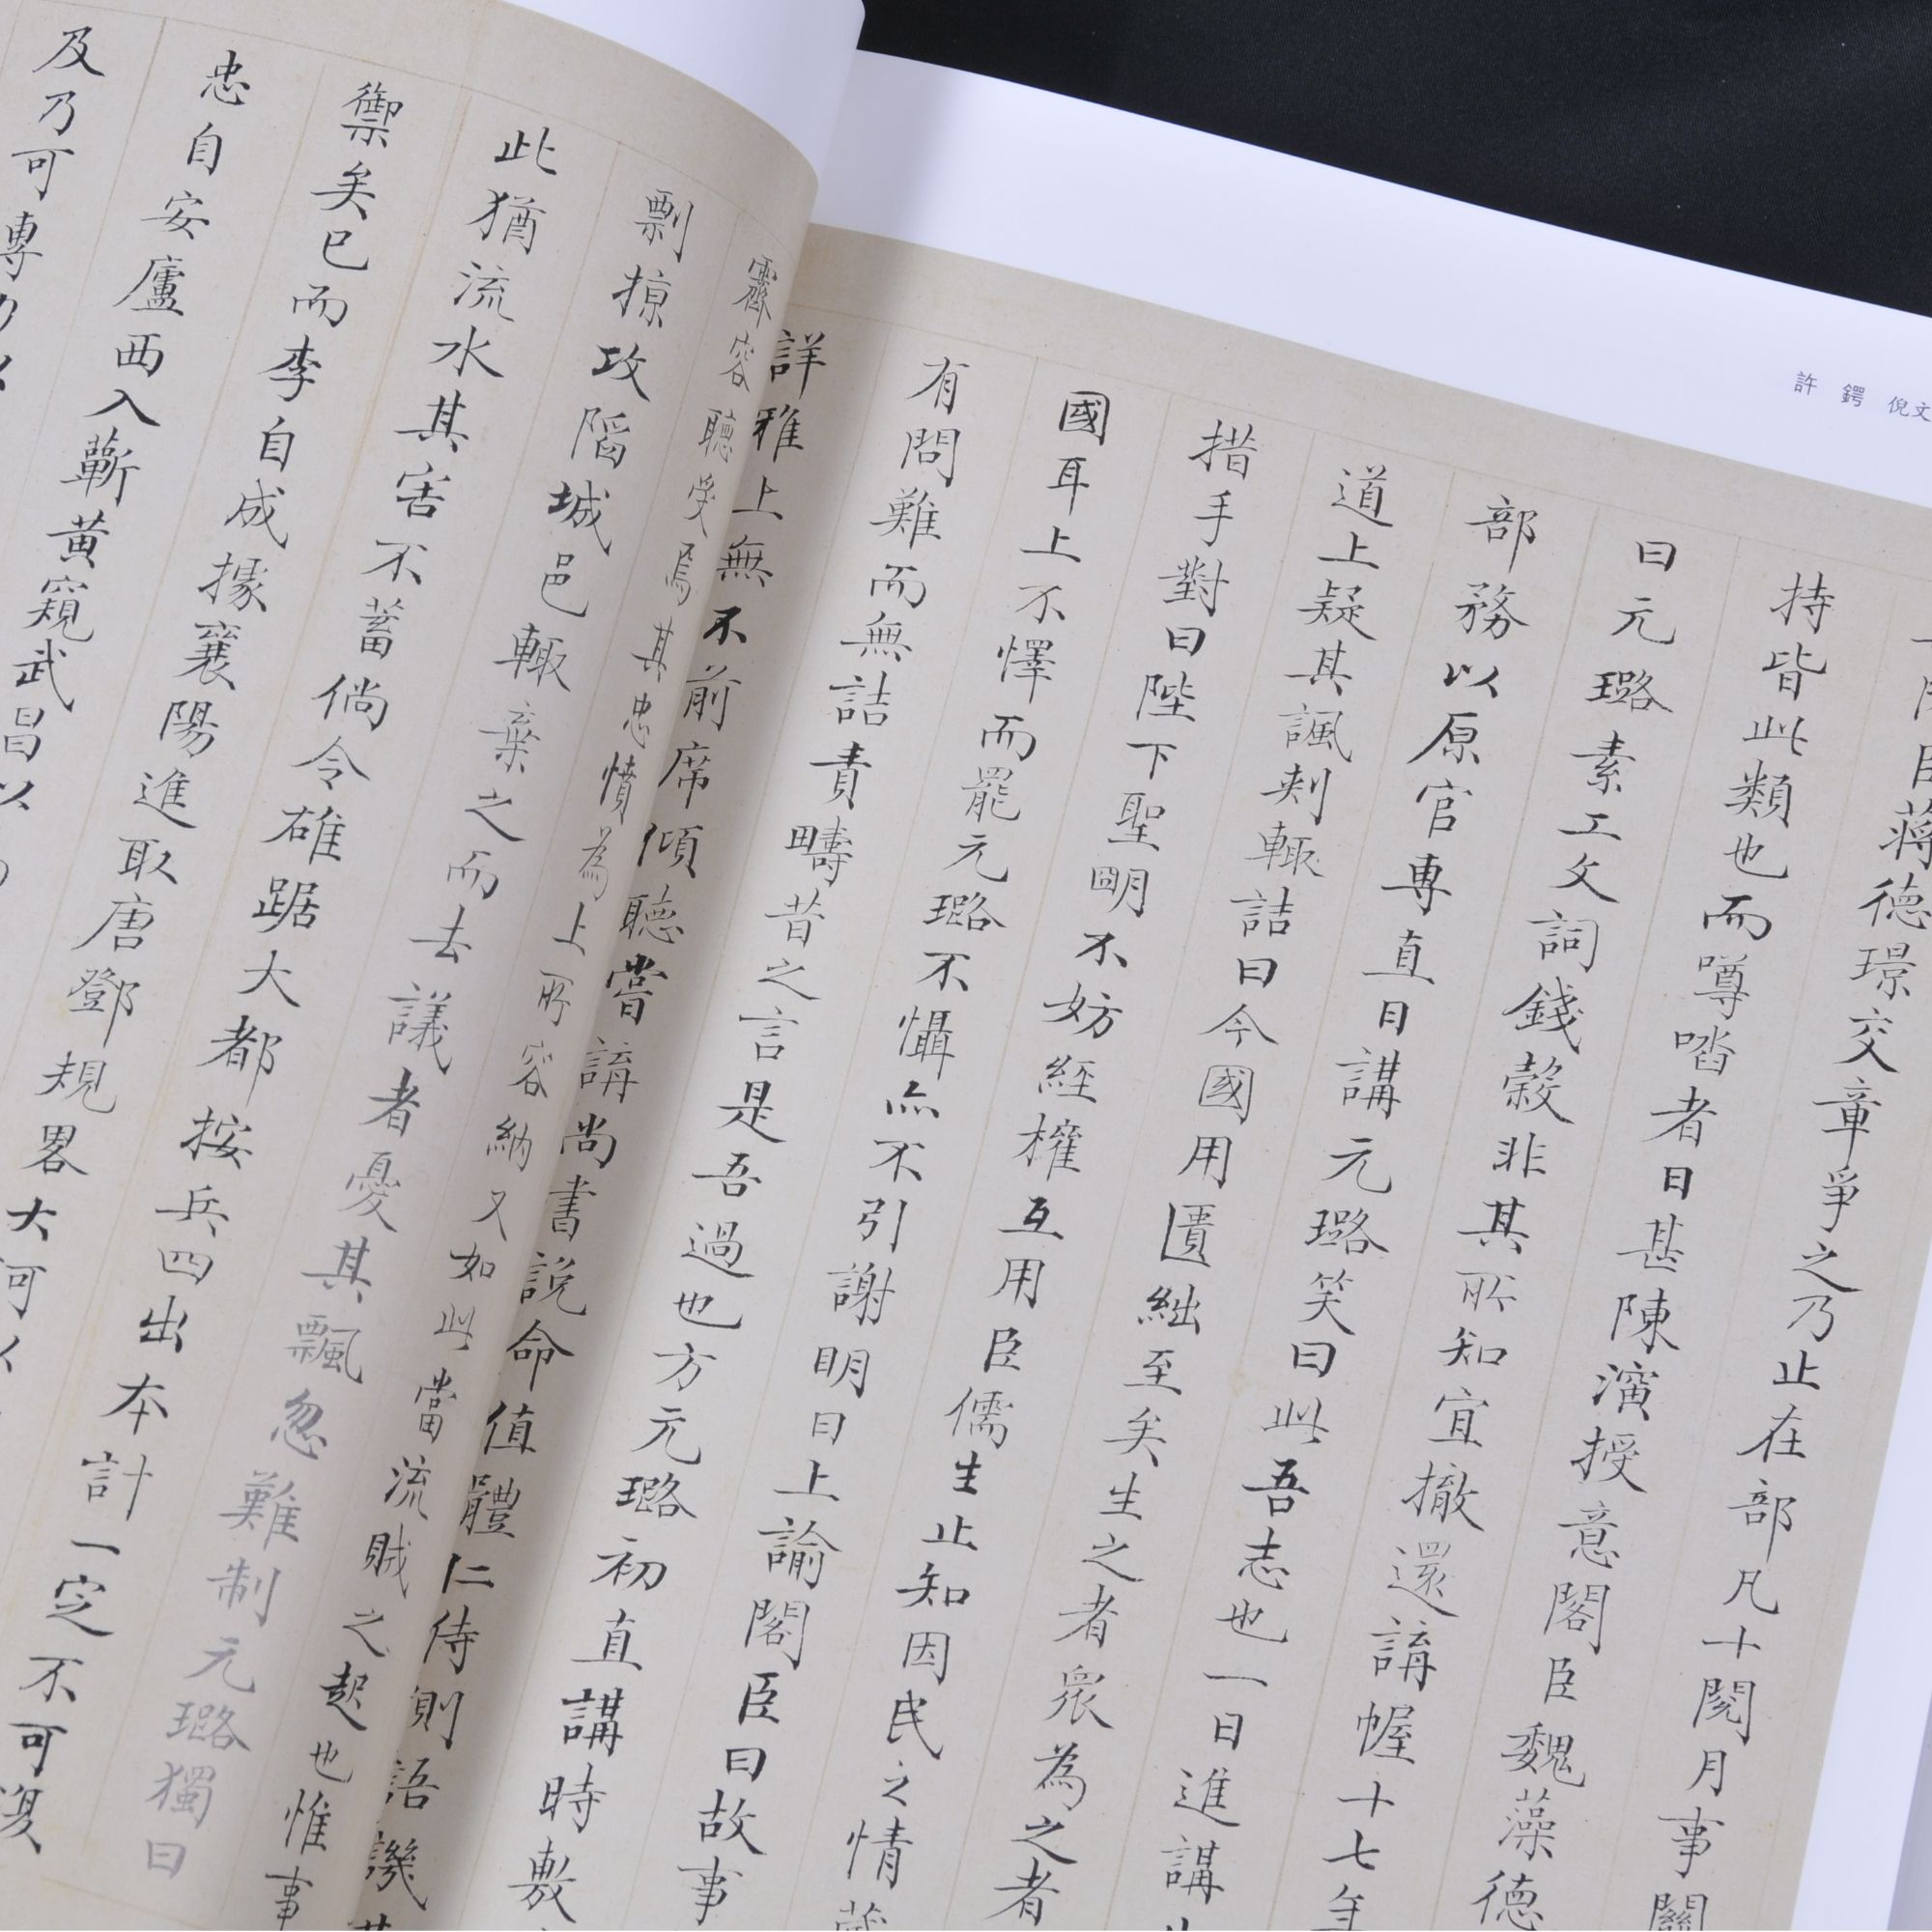 許 鍔 倪文
臣蔣德璟交章爭之乃止在部凡十閱月事關
持皆此類也而噂喒者日甚陳演授意閣臣魏藻德
曰元璐素工文詞錢穀非其所知宜撤還講幄十七年
部務以原官專直日講元璐笑曰此吾志也一日進講
道上疑其諷刺輒詰曰今國用匱絀至矣生之者眾為之者
措手對曰陛下聖明不妨經權互用臣儒生止知因民之情
國耳上不懌而罷元璐不懾亦不引謝明日上諭閣臣曰故事
有問難而無詰責疇昔之言是吾過也方元璐初直講時敷
詳雅上無不前席傾聽嘗講尚書說命值體仁侍則語譏
霽容聽受焉其忠憤為上所容納又如此當流賊之起也惟事
剽掠攻陷城邑輒棄之而去議者憂其飄忽難制元璐獨曰
此猶流水其害不蓄倘令雄踞大都按兵四出本計一定不可復
禦矣已而李自成據襄陽進取唐鄧規畧大河以
忠自安廬西入蘄黃窺武昌以
及乃可專力以